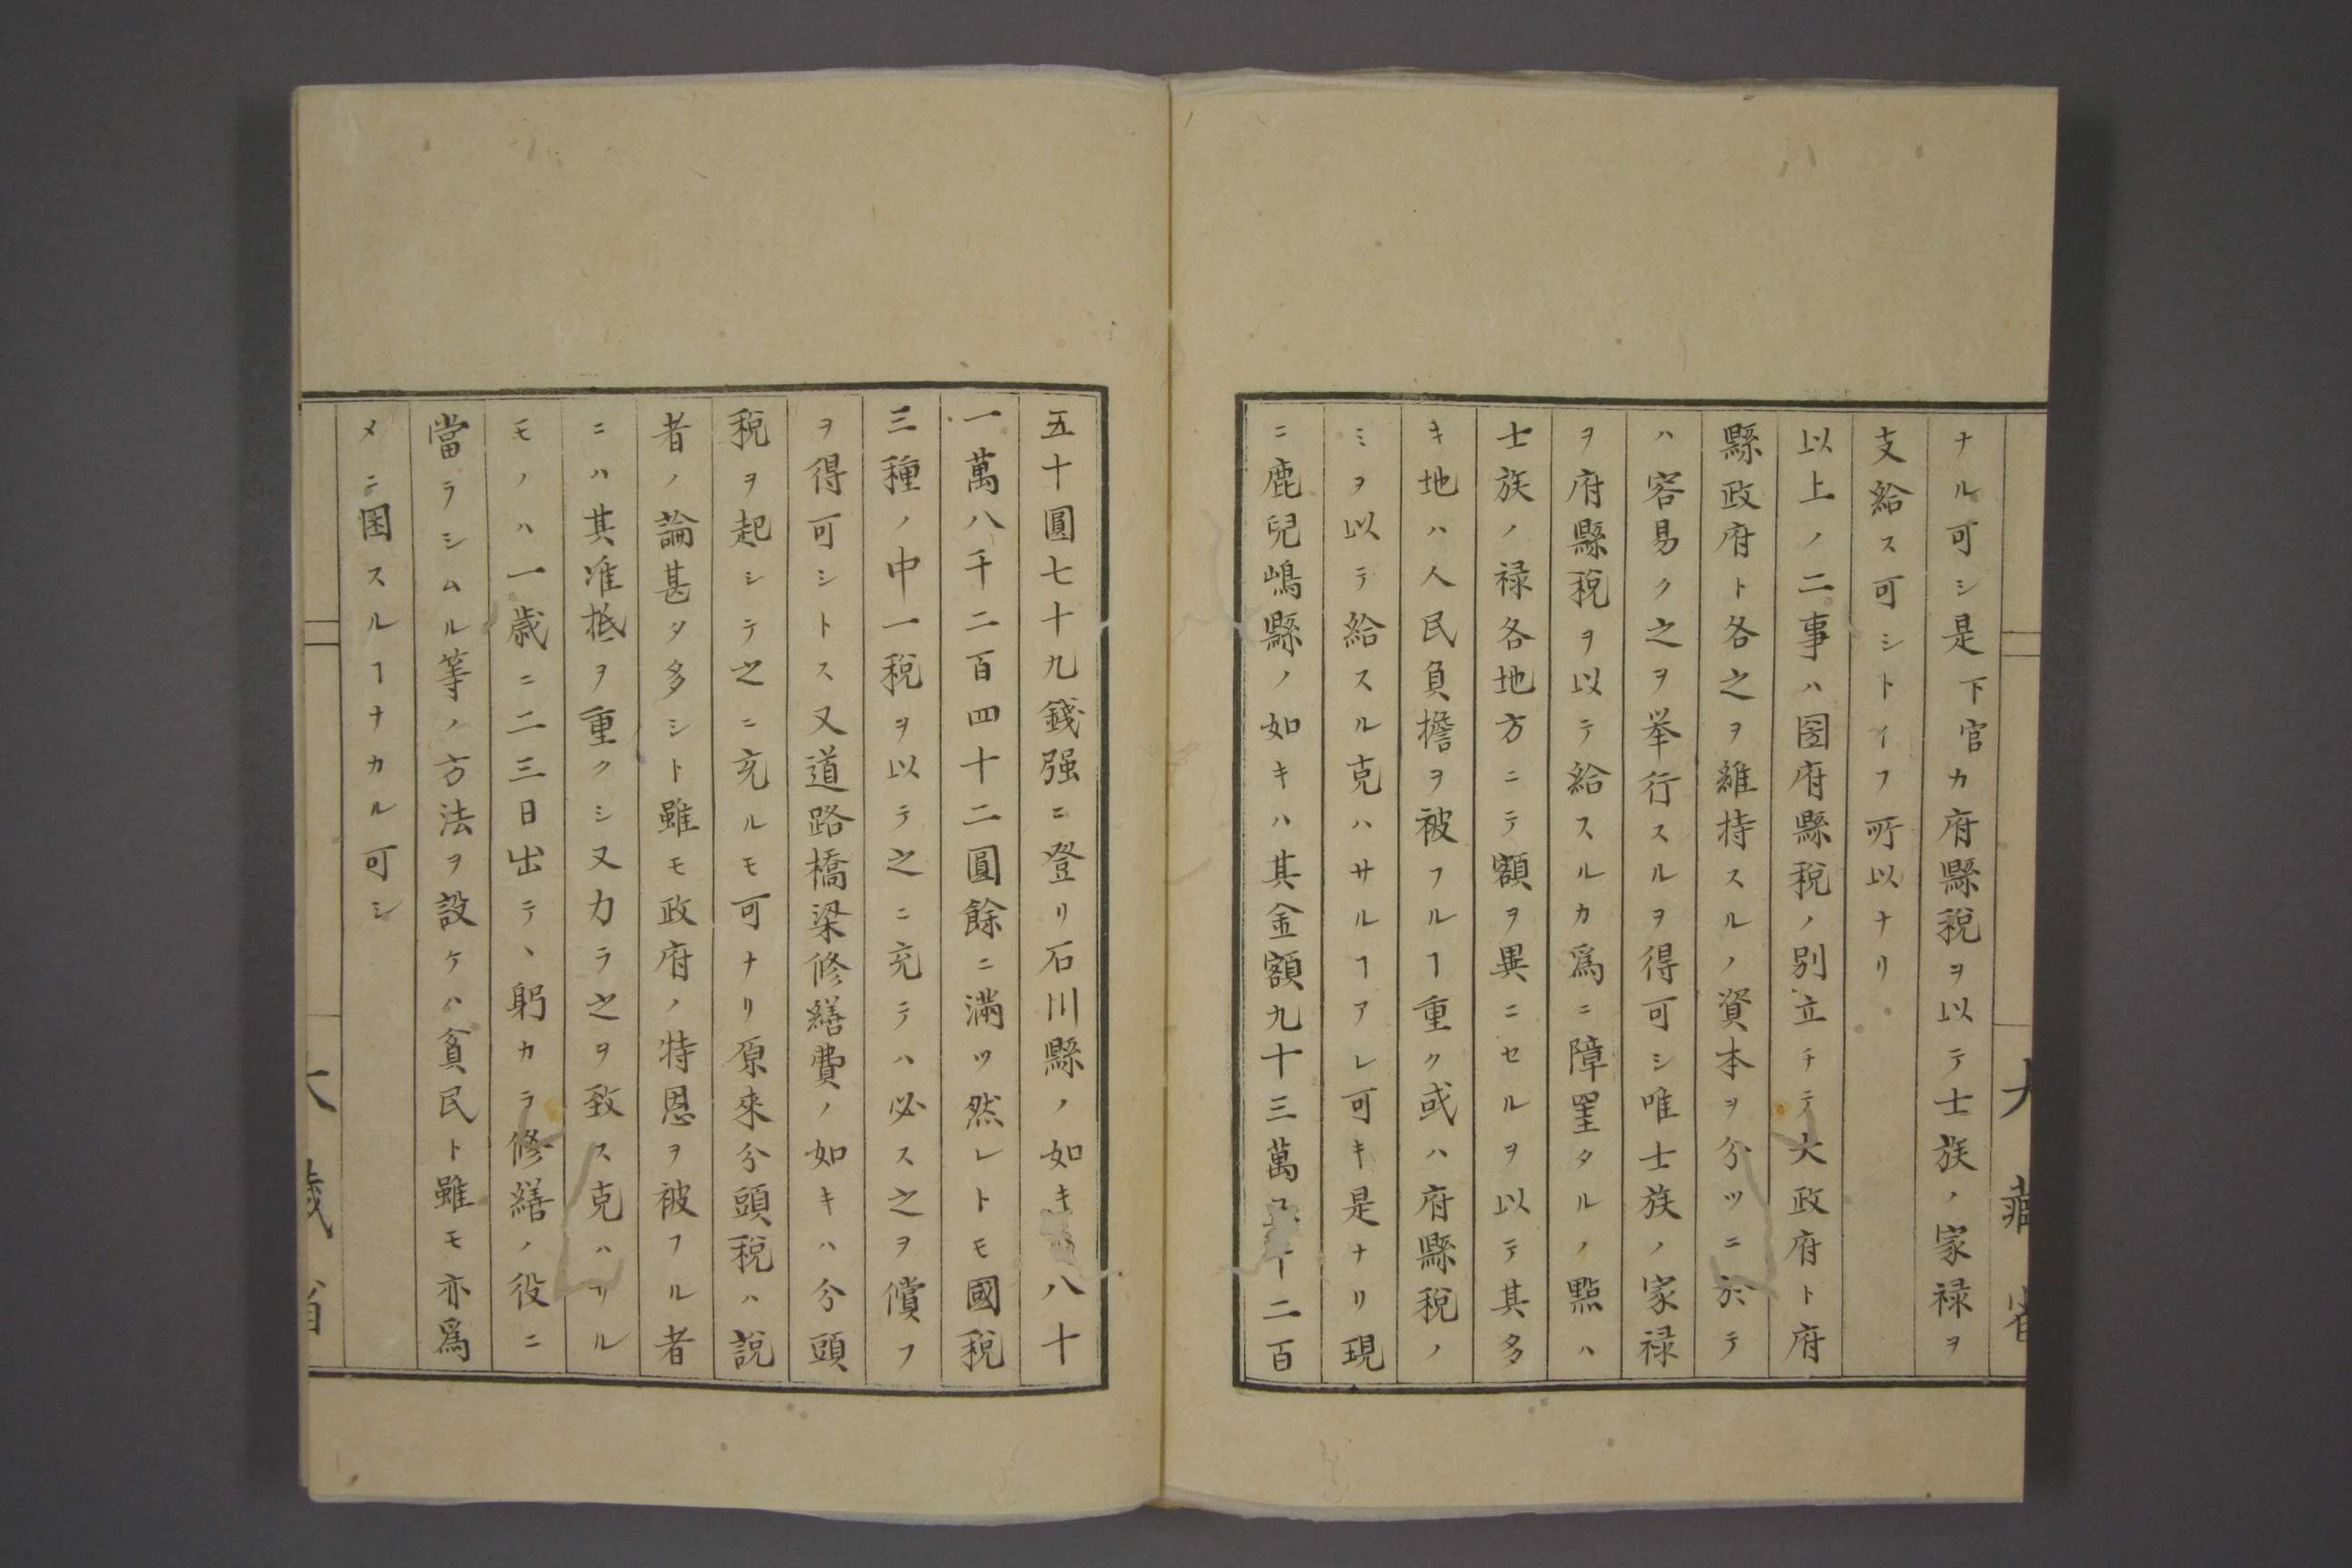 ナル可シ是下官カ府縣税ヲ以テ士族ノ家禄ヲ
支給ス可シトイフ所以ナリ
以上ノ二事ハ圀府縣税ノ別立チテ大政府ト府
縣政府ト各之ヲ維持スルノ資本ヲ分ツニ於テ
ハ容易ク之ヲ挙行スルヲ得可シ唯士族ノ家禄
ヲ府縣税ヲ以テ給スルカ爲ニ障罣タルノ點ハ
士族ノ禄各地方ニテ額ヲ異ニセルヲ以テ其多
キ地ハ人民負擔ヲ被フルヿ重ク或ハ府縣税ノ
ミヲ以テ給スル克ハサルヿアレ可キ是ナリ現
ニ鹿兒嶋縣ノ如キハ其金額九十三萬千二百
五十圓七十九錢强ニ登リ石川縣ノ如キ八十
一萬八千二百四十二圓餘ニ滿ツ然レトモ國税
三種ノ中一税ヲ以テ之ニ充テハ必ス之ヲ償フ
ヲ得可シトス又道路橋梁修繕費ノ如キハ分頭
税ヲ起シテ之ニ充ルモ可ナリ原來分頭税ハ説
者ノ論甚タ多シト雖モ政府ノ特恩ヲ被フル者
ニハ其准抵ヲ重クシ又力ラ之ヲ致ス克ハサル
モノハ一歳ニ二三日出テヽ躬カラ修繕ノ役ニ
當ラシムル等ノ方法ヲ設ケハ貧民ト雖モ亦爲
メニ困スルヿナカル可シ
大藏省